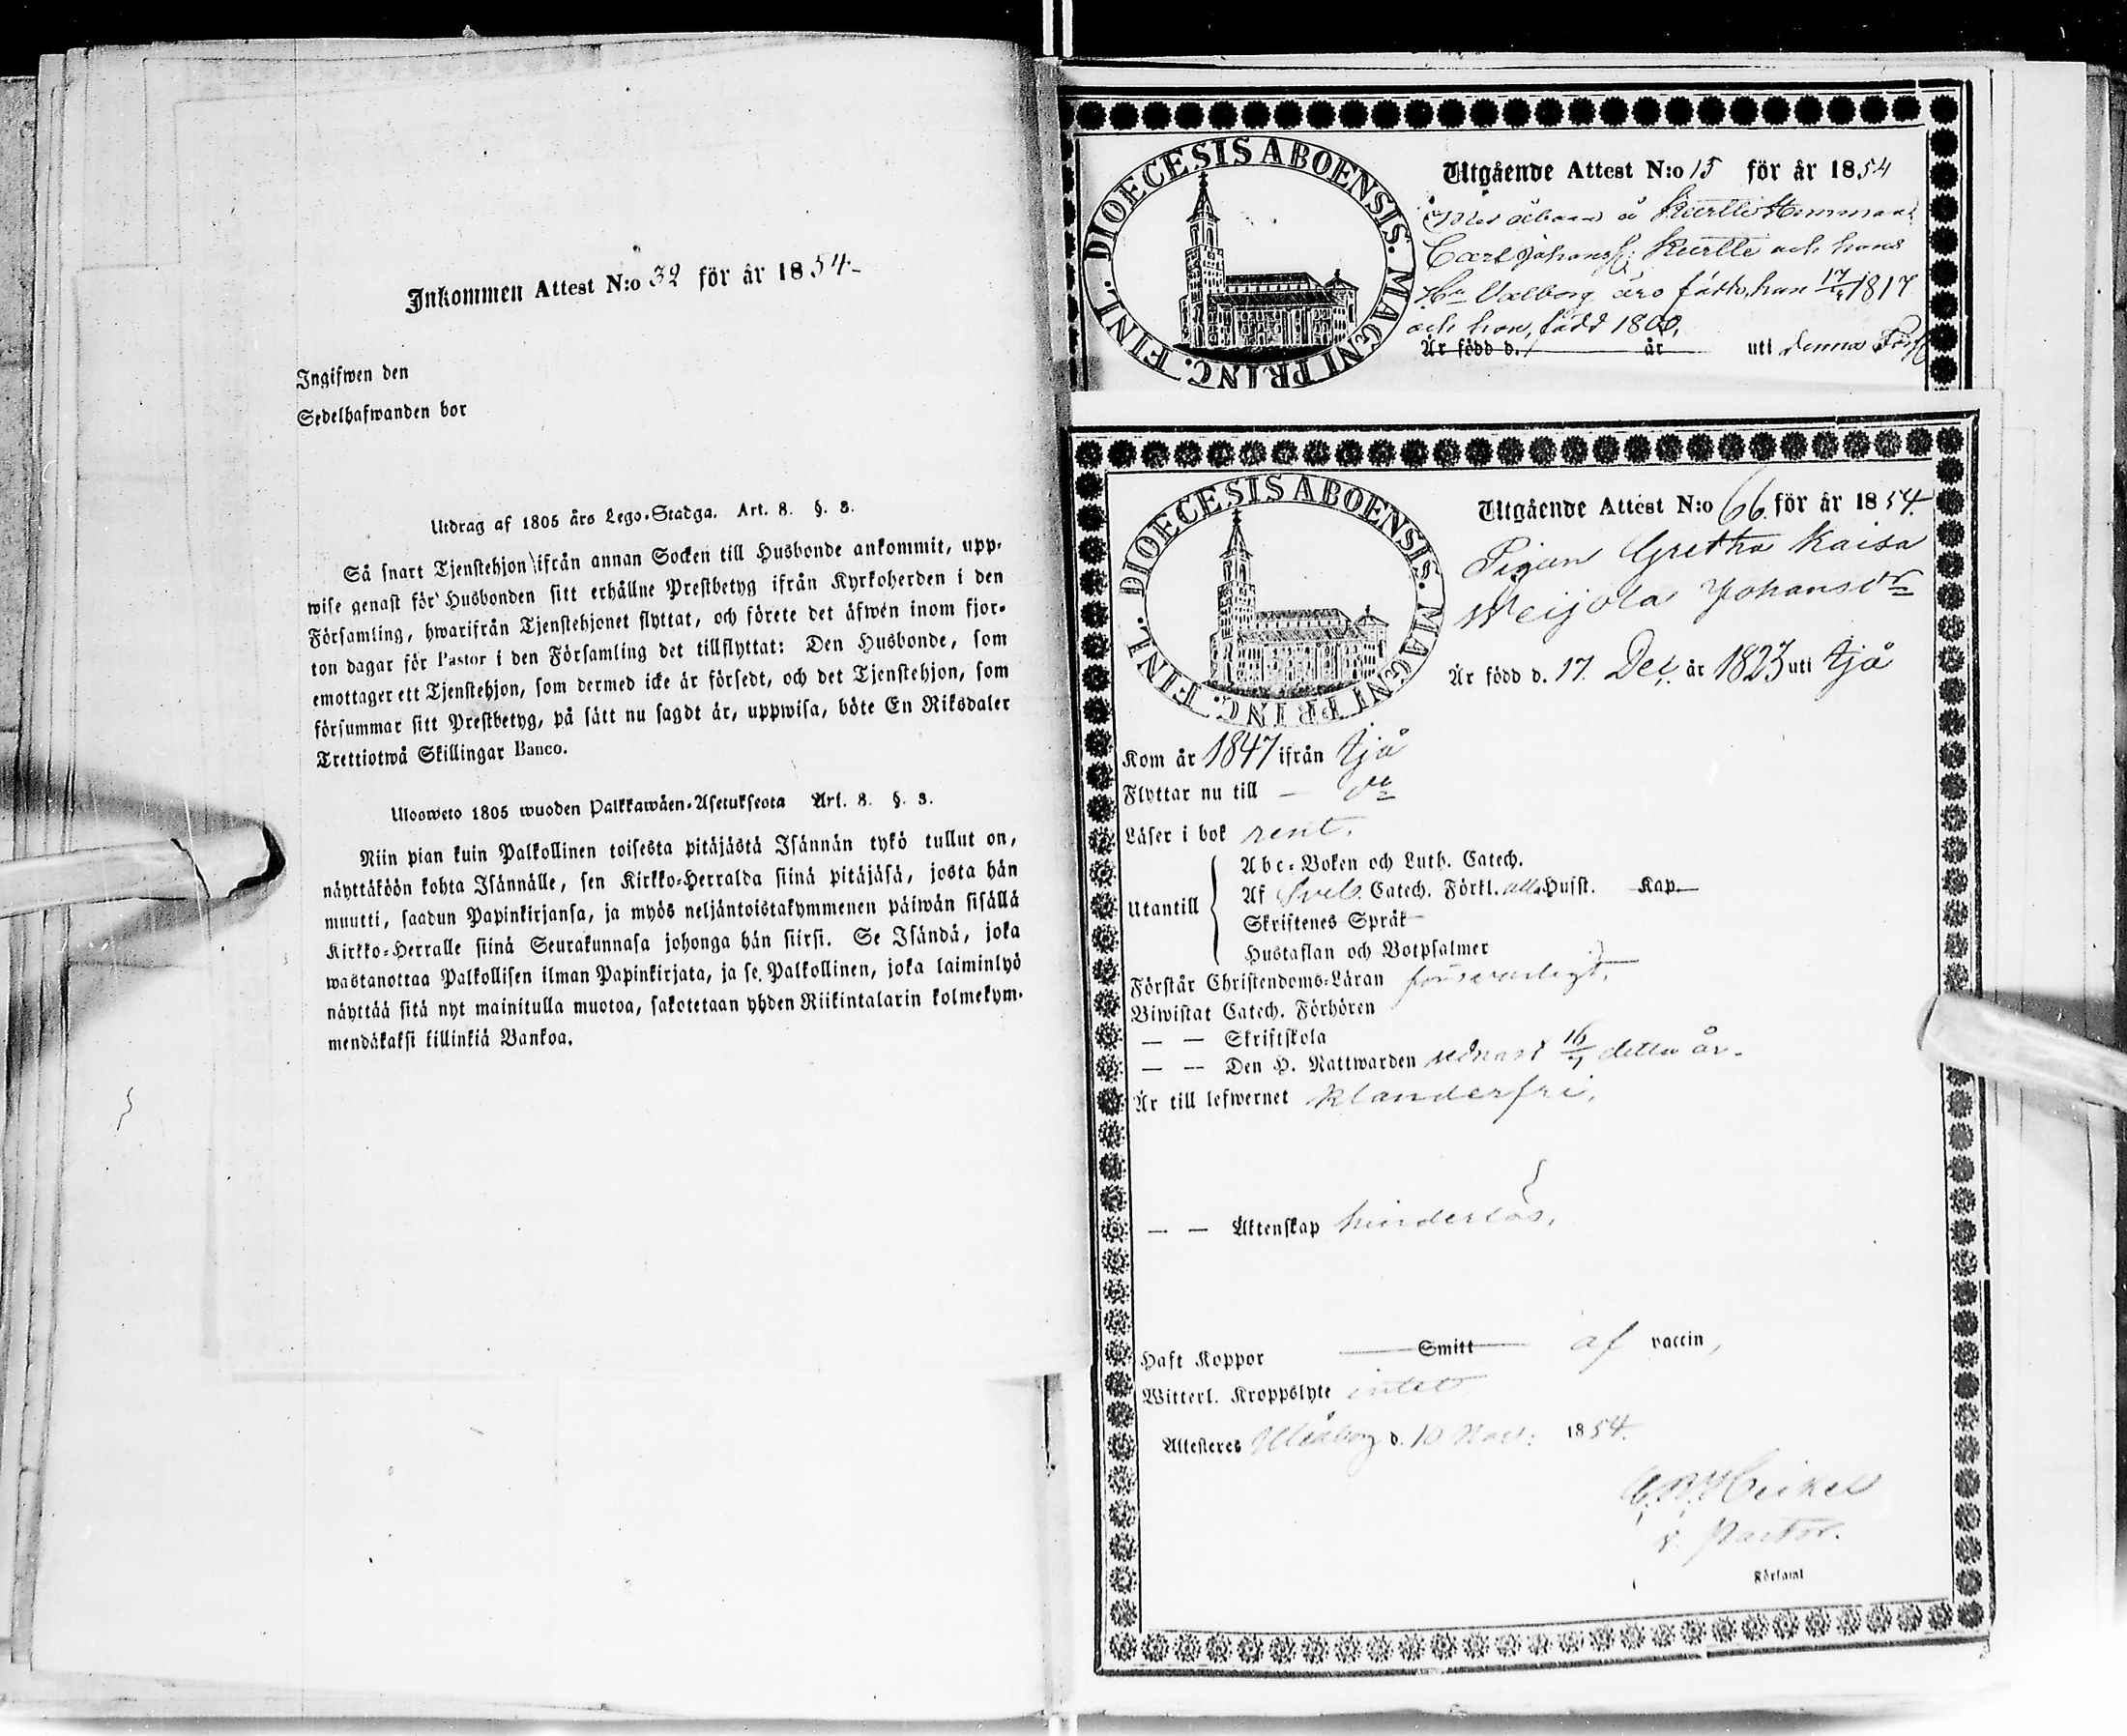 Inkommen Attest N:o 32 för år 1854.
Ingifwen den
Sedelhafwanden bor
Utdrag af 1805 års Lego-Stadga. Art. 8. §. 3.
Så snart Tjenstehjon ifrån annan Socken till Husbonde ankommit, upp-
wise genast för Husbonden sitt erhållne Prestbetyg ifrån Kyrkoherden i den
Församling, hwarifrån Tjenstehjonet flyttat, och förete det äfwen inom fjor-
ton dagar för Pastor i den Församling det tillflyttat: Den Husbonde, som
emottager ett Tjenstehjon, som dermed icke är försedt, och det Tjenstehjon, som
försummar sitt Prestbetyg, på sätt nu sagdt är, uppwisa, böte En Riksdaler
Trettiotwå Skillingar Banco.
Ulosweto 1805 wuoden Palkkawäen-Asetuksesta Art. 8. §. 3.
Niin pian kuin Palkollinen toisesta pitäjästä Isännän tykö tullut on,
näyttäköön kohta Isännälle, sen Kirkko-Herralda siinä pitäjäsä, josta hän
muutti, saadun Papinkirjansa, ja myös neljäntoistakymmenen päiwän sisällä
Kirkko-Herralle siinä Seurakunnasa johonga hän siirsi. Se Isändä, joka
wastanottaa Palkollisen ilman Papinkirjata, ja se Palkollinen, joka laiminlyö
näyttää sitä nyt mainitulla muotoa, sakotetaan yhden Riikintalarin kolmekym-
mendäkaksi killinkiä Bankoa.
DIOECESIS ABOENSIS. MAGNI PRINC. FINL.
Utgående Attest N:o 15 för år 1854
å Kurtti Hemman
Carl Johanss. Kurtti och hans
H:u Valborg äro födde, han 17/ 1817
och hon, född 1800,
Är född d. år uti denna Förs
DIOECESIS ABOENSIS. MAGNI PRINC. FINL.
Utgående Attest N:o 66 för år 1854.
Pigan Gretha Kaisa
Weijola Johansdr
Är född d. 17. Dec. år 1823 uti Ijå
Kom år 1847 ifrån Ijå
Flyttar nu till — do
Läser i bok rent.
Utantill
Abc-Boken och Luth. Catech.
Af Sveb. Catech. Förkl. alla Hufst. Kap.
Skriftenes Språk
Hustaflan och Botpsalmer
Förstår Christendoms-Läran försvarligt.
Biwistat Catech. Förhören
— — Skriftskola
— — Den H. Nattwarden sednast 16/ detta år.
Är till lefwernet klanderfri.
— — Äktenskap hinderlös.
Haft Koppor Smitt af vaccin,
Witterl. Kroppslyte intet
Attesteres Uleåborg d. 10 Nov: 1854.
Heikel
v. Pastor.
Församl